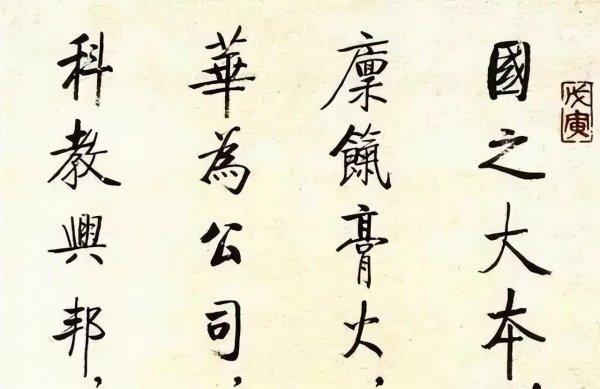 戊寅
國之大本，
廩餼膏火，
華為公司，
科教興邦，